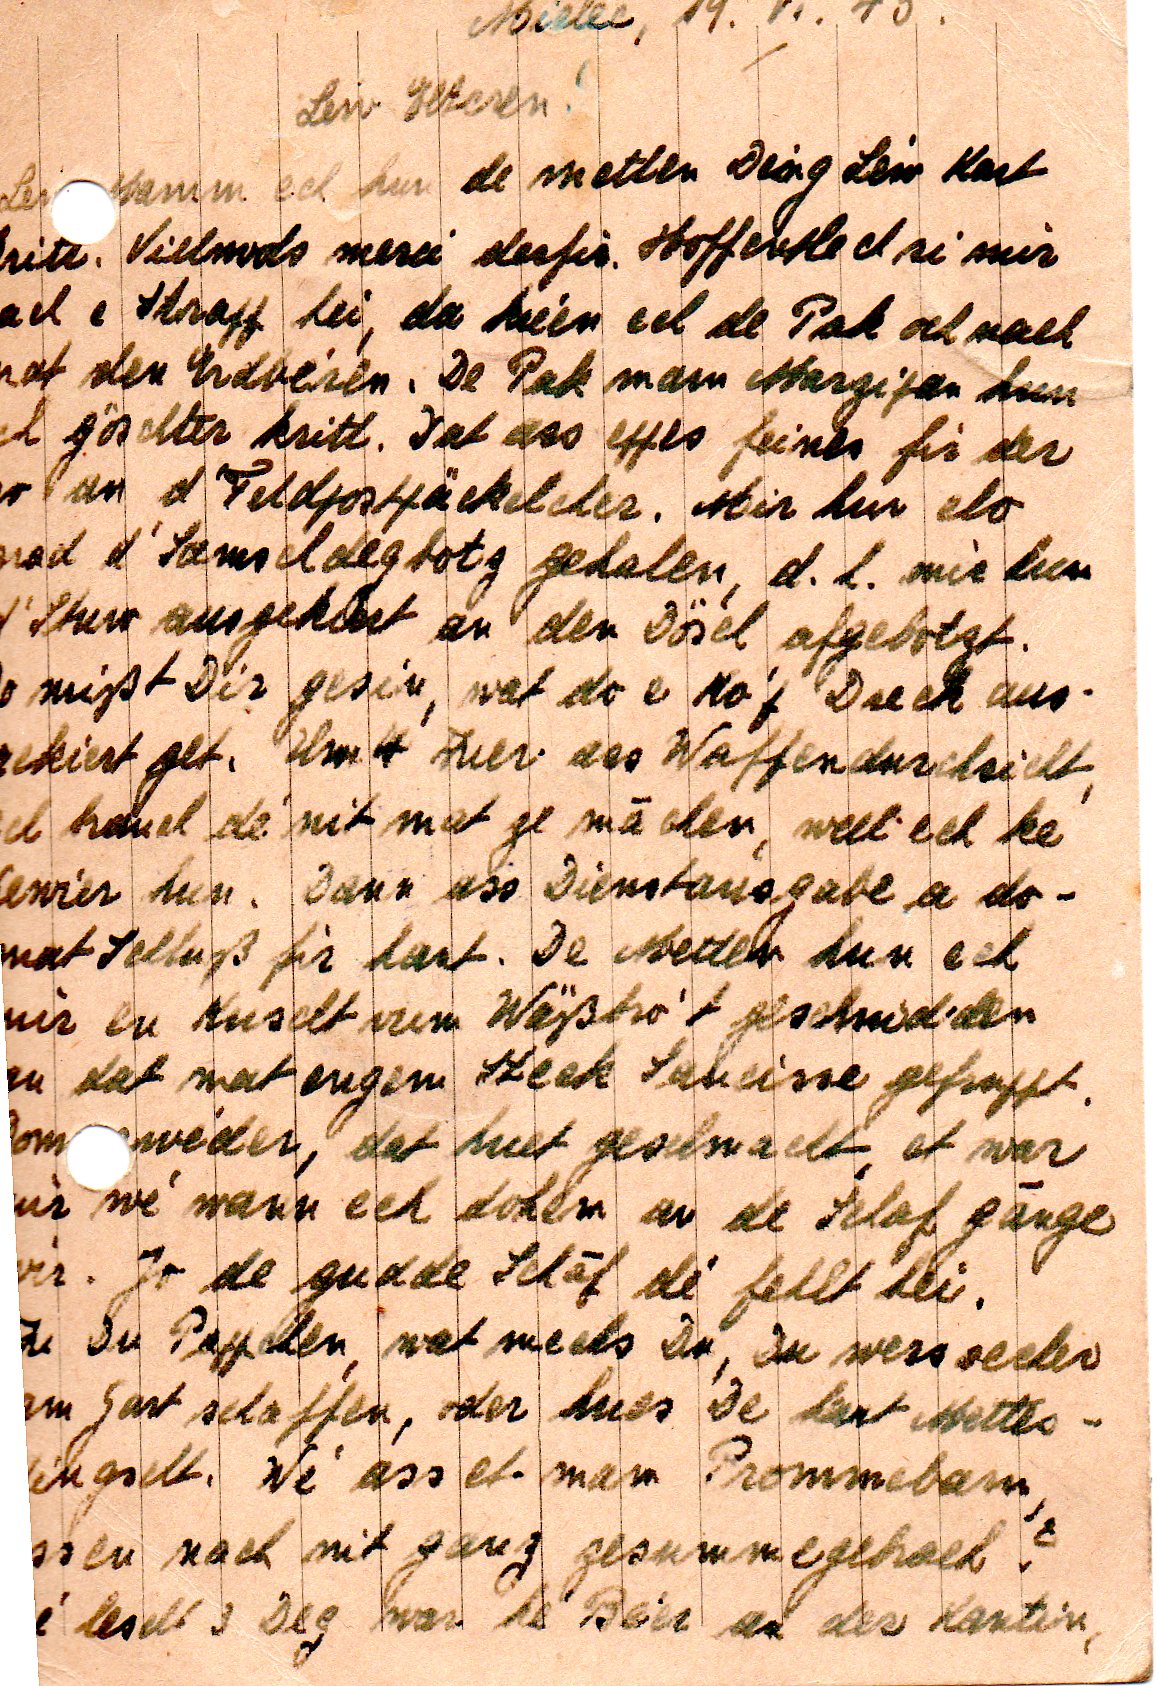 Mielec, 19. VI. 43.
Lew Elteren!
Lew Mamm ech hun de metten Deng Lew Kart
kritt. Vielmols merci derfir. Hoffentlech si mir
nach e Strapp hei, da kréien ech de Pak och nach
mat den Erdbieren. De Pak mam Marzipan hun
ech göschter kritt. Dat ass eppes feines fir der
an d'Feldpostpäckelcher. Mir hun elo
grad d'Samschdegbotz gehalen, d. h. mir hun
d'Stuw ausgekiert an den Dösch afgebotzt.
Do mißt Dir gesin, wat do e Kop Dreck aus-
gekiert get. Um 4 Auer ass Waffendurchsicht,
ech brauch dé nit mat ze māchen, well ech ke
Gewier hun. Dann ass Dienstausgabe a do-
mat Schluß fir haut. De Metten hun ech
mir en Kuscht vum Wäßbro't geschnidden
an dat mat engem Steck Saucisse gefruppt.
Donnerwéder, dat huet geschmacht, et war
mir wé wann ech dohem an de Schaf gānge
wir. Jo de gudde Schāf dé fehlt hei.
Du Pappchen, wat mechs Du, Du wers secher
am Gart schaffen, oder hues De haut Mettes-
dingscht. Wé ass et mam Prommebam,
assen nach nit ganz zesummegebrach?
Dé lescht 3 Deg war ké Béier an der Kantin,